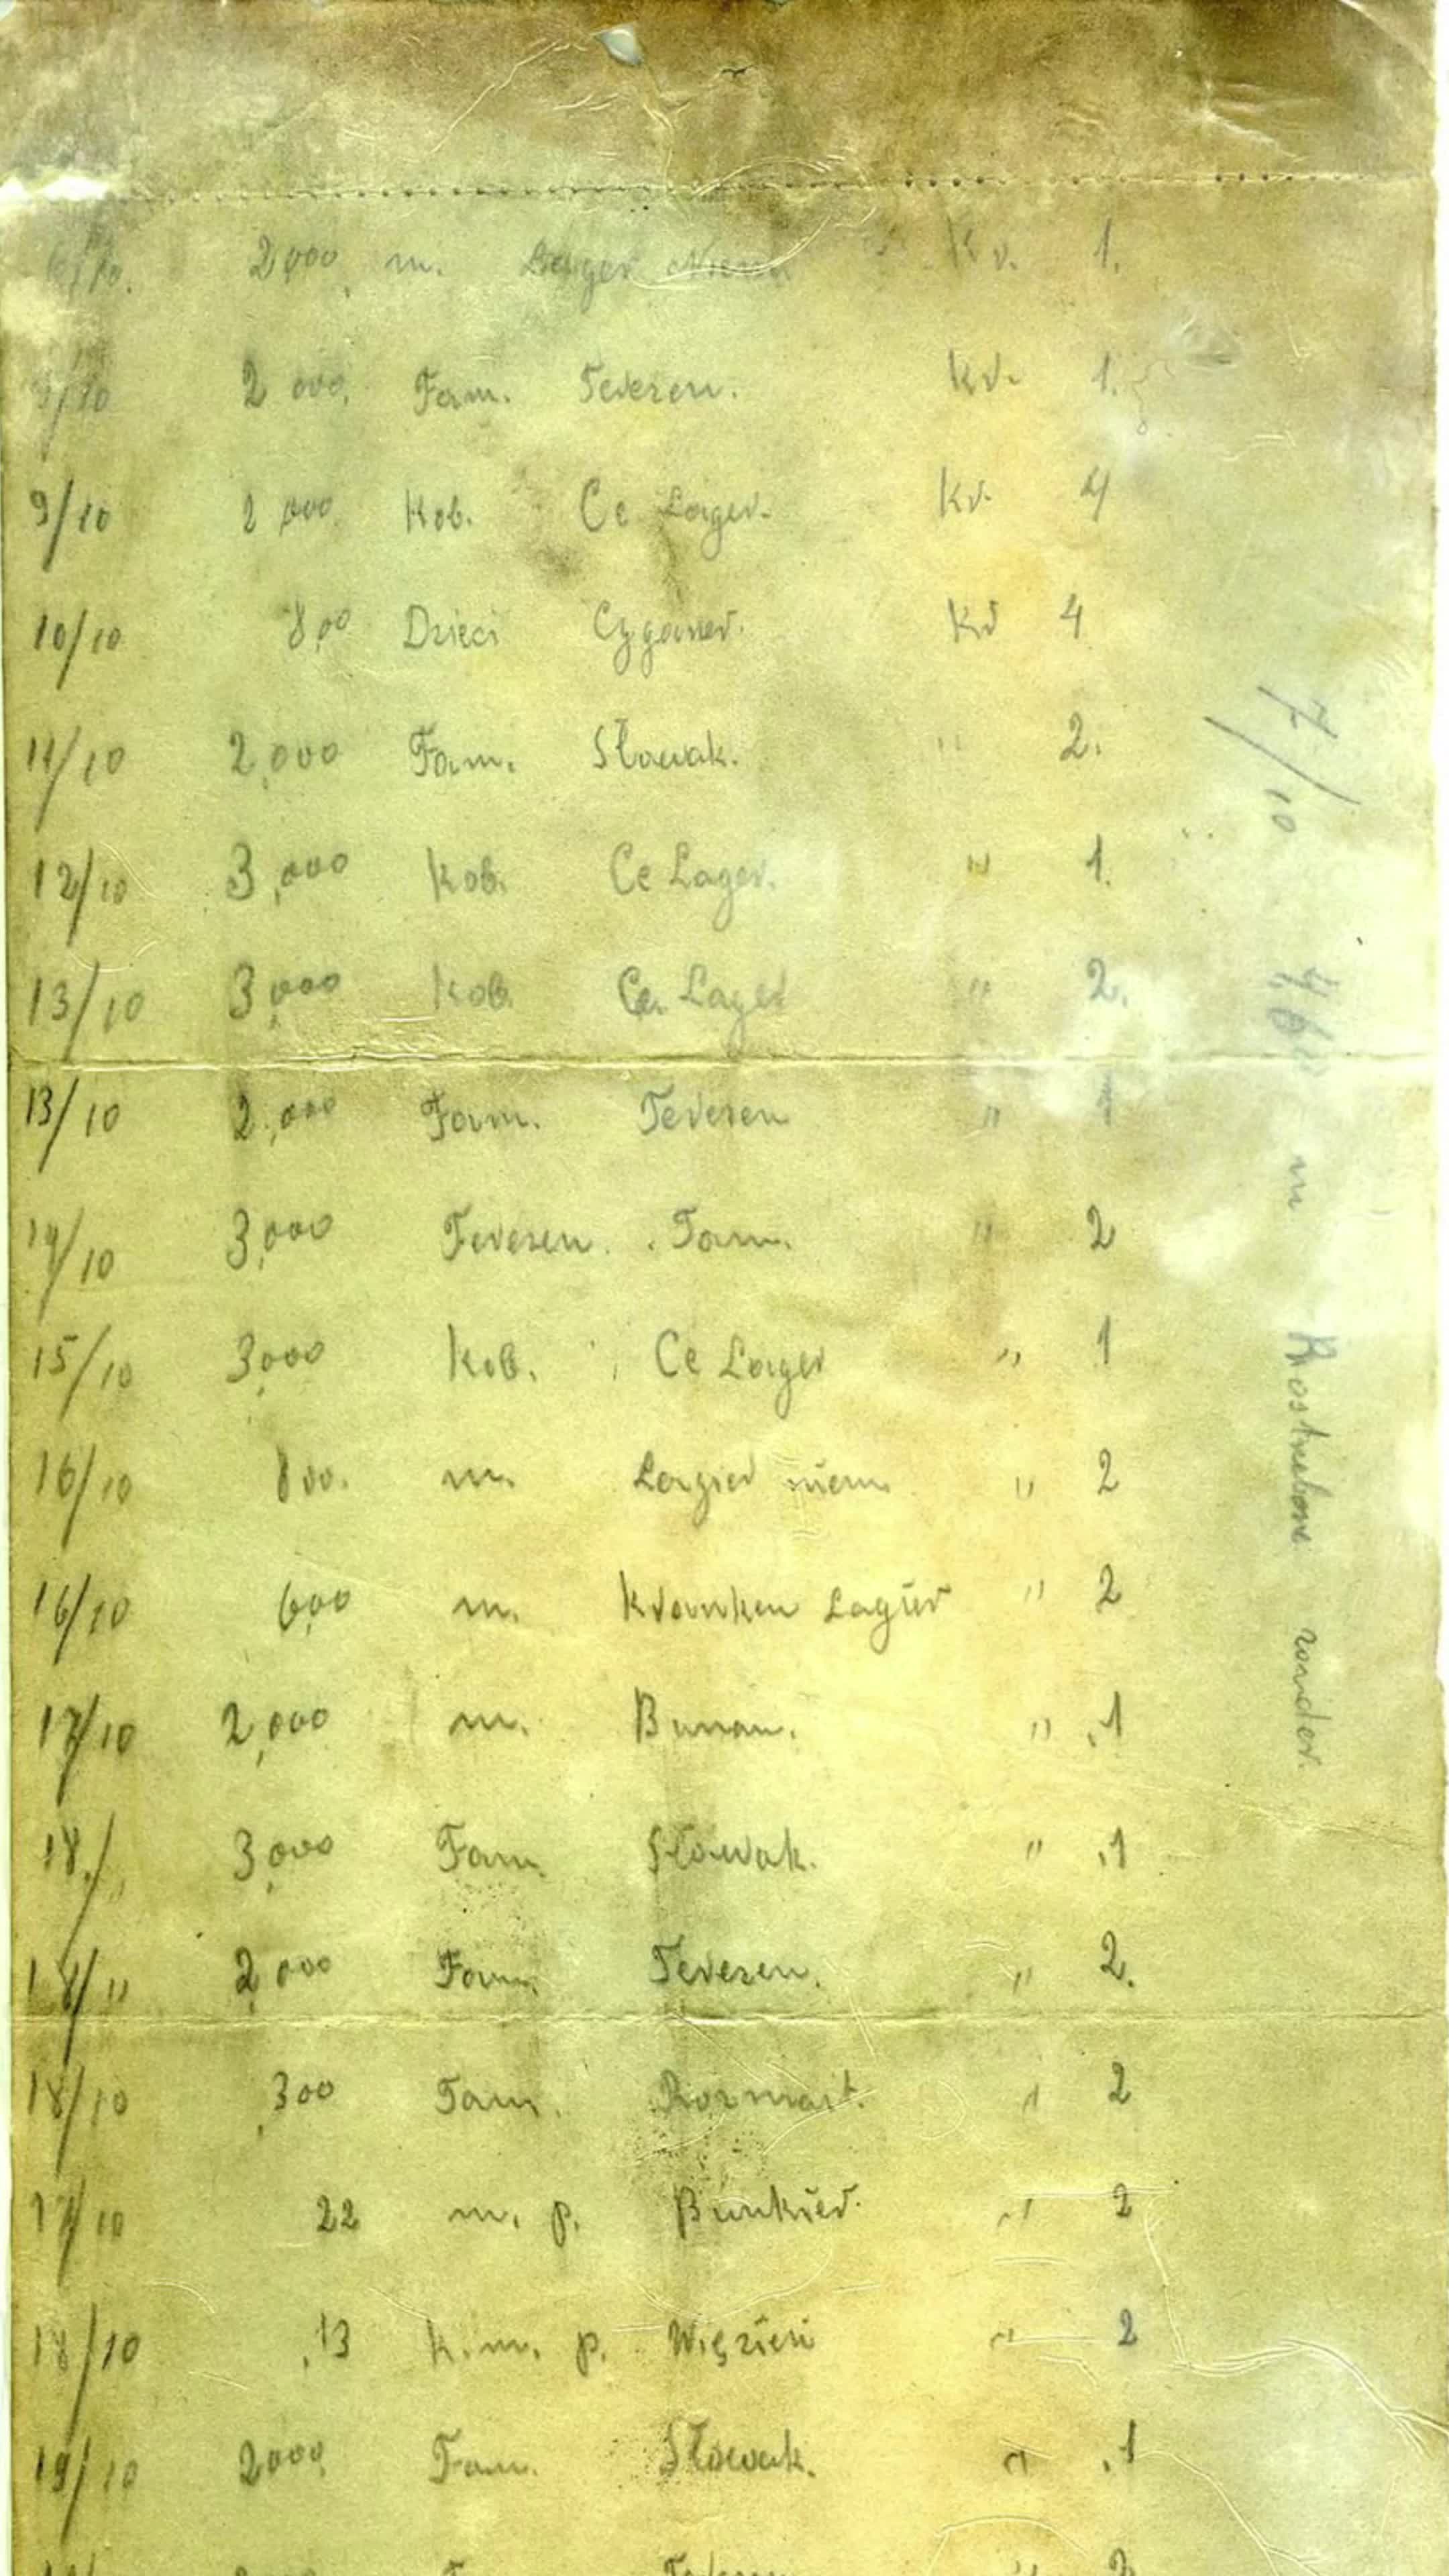 6/10. 2,000 m. Lager Niem. Kr. 1.
9/10 2 000, Fam. Teresen. Kr. 1.
9/10 2 000 Kob. Ce Lager. Kr. 4
10/10 8,00 Dzieci Cyganer. Kr 4
11/10 2,000 Fam. Słowak. " 2.
12/10 3,000 Kob. Ce Lager. " 1.
13/10 3,000 Kob. Ce. Lager " 2.
13/10 2,000 Fam. Teresen " 1
14/10 3,000 Teresen. Fam. " 2
15/10 3,000 Kob. Ce Lager " 1
16/10 800. m. Lagier niem " 2
16/10 6,00 m. Kranken Lagier " 2
17/10 2,000 m. Bunau. " 1
18/" 3,000 Fam. Słowak. " 1
18/" 2,000 Fam. Teresen. " 2.
18/10 300 Fam. Rozmait. " 2
17/10 22 m. p. Bunkier. " 2
18/10 13 K. m. p. Więzień " 2
19/10 2000, Fam. Słowak. " 1
7/10 460 m Rostrelone zonder.